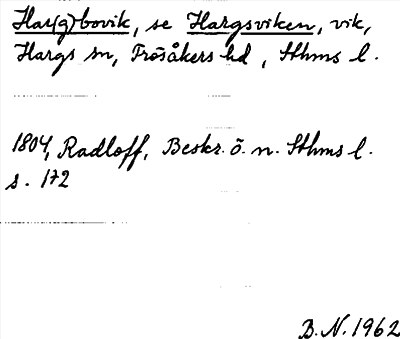 Har(g)bovik, se Hargsviken, vik,
Hargs sn, Frösåkers hd, Sthms l.
1804, Radloff, Beskr. ö. n. Sthms l.
s. 172
B.N. 1962